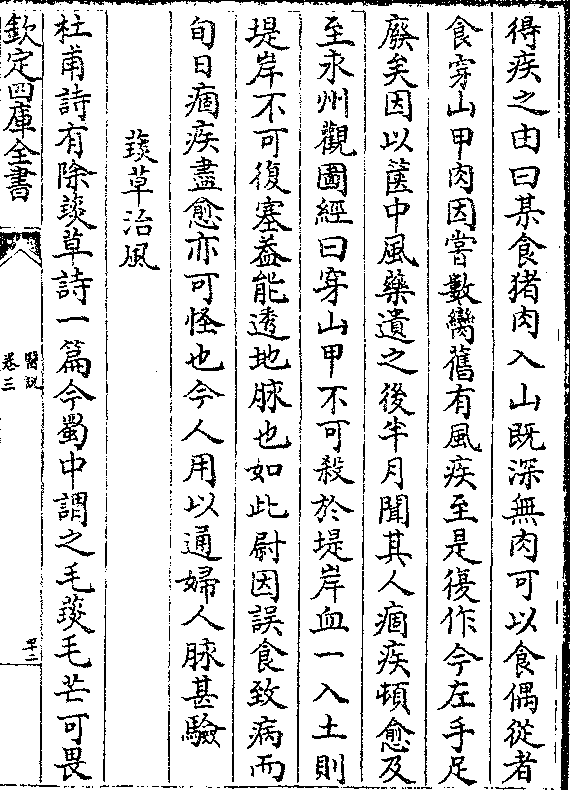 得疾之由曰某食猪肉入山既深無肉可以食偶從者
食穿山甲肉因嘗數臠舊有風疾至是復作今左手足
廢矣因以篋中風藥遺之後半月聞其人痼疾頓愈及
至永州觀圖經曰穿山甲不可殺於堤岸血一入土則
堤岸不可復塞葢能透地脉也如此尉因誤食致病而
旬日痼疾盡愈亦可怪也今人用以通婦人脉甚驗
蕁草治風
杜甫詩有除蕁草詩一篇今蜀中謂之毛蕁毛芒可畏
欽定四庫全書
醫説
卷三
四十二